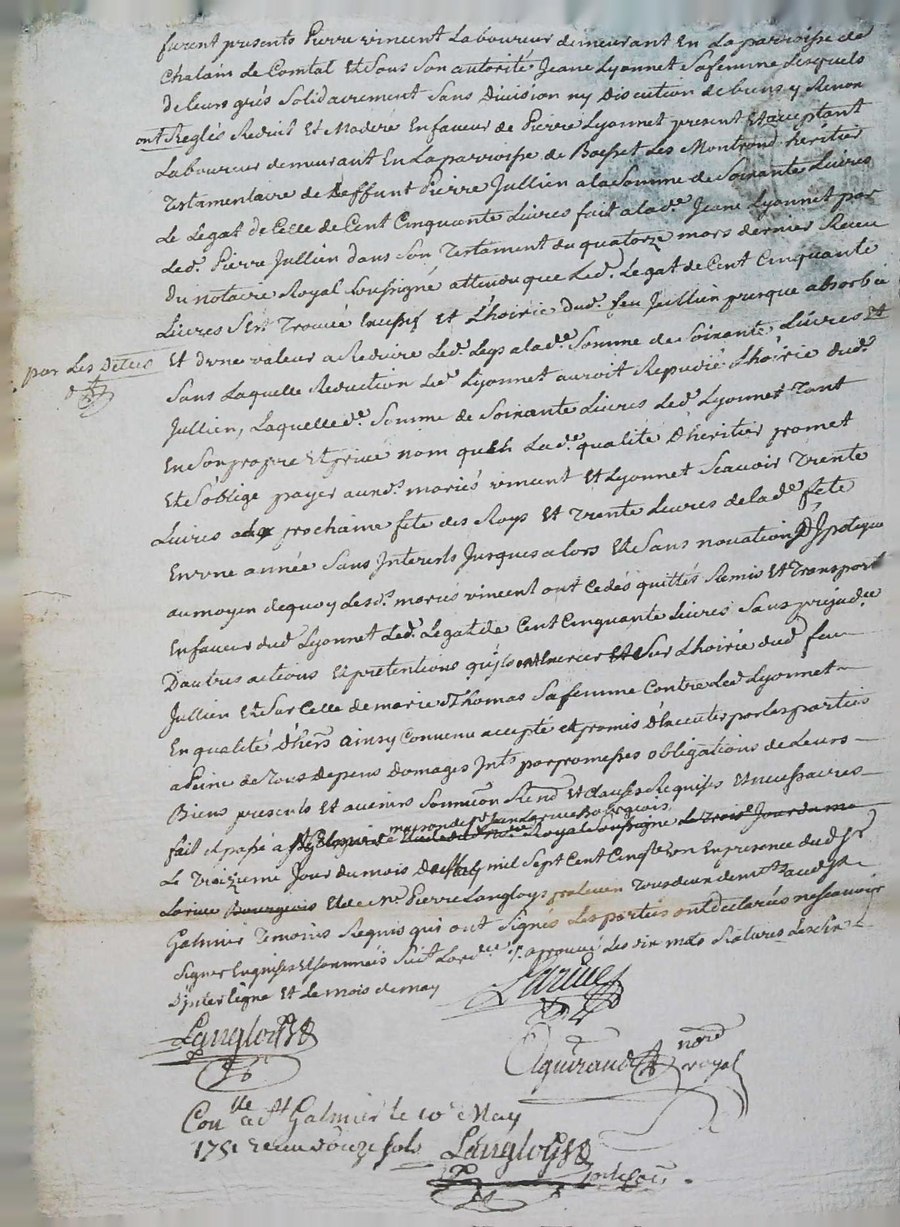 furent presents Pierre vincent Laboureur demeurant En Laparroisse de
Chalain Le Comtal Et Sous Son autorité Jeane Lyonnet Safemme Lesquels
De leurs grés Solidairement Sans Division ny Discution de biens y Renon
ont Reglés Reduit Et Moderé En faveur de Pierre Lyonnet present Et aceptant
Laboureur demeurant En Laparroisse de Boisset Les Montrond heritier
Testamentaire de Deffunt Pierre Jullien a la Somme de Soixante Livres
Le Legat de Celle de Cent Cinquante Livres fait a lade. Jeane Lyonnet par
Led. Pierre Jullien dans Son Testament du quatorze mars dernier Receu
Du notaire Royal Soussigné attendu que Led. Legat de Cent Cinquante
Livres S'est Trouvé Excessif Et L'hoirie dud. feu Jullien presque absorbée
par Les Detes
Et d'une valeur a Reduire Led. Legs a lade. Somme de Soixante Livres Et
Sans Laquelle Reduction Led. Lyonnet auroit Repudié L'hoirie dud.
Jullien, Laquelle de. Somme de Soixante Livres Led. Lyonnet Tant
En Son propre Et privé nom qu'En Lade. qualité D'heritier promet
Et S'oblige payer auxds. mariés vincent Et Lyonnet Scavoir Trente
Livres a la prochaine fete des Roys Et Trente Livres delade. fete
En une année Sans Interests Jusques alors Et Sans novation D'Ypoteque
au moyen de quoy Lesds. mariés vincent ont Cedés quittés Remis Et Transporté
En faveur dud. Lyonnet Led. Legat de Cent Cinquante Livres Sans prejudice
D'autres actions Et pretentions qu'ils ont Sur L'hoirie dud. feu
Jullien Et Sur Celle de marie Thomas Safemme Contre Led. Lyonnet
En qualité d'hers. ainsy Convenu accepté et promis D'Executer par les parties
a Peine de Tous depens domages Ints. par promesses obligations de Leurs
Biens presents Et avenirs Soumission Renon Et Clauses Requises Et necessaires
maison de Sr. Jean Larive Bourgeois
fait Et passé a St. Galmier Royal Soussigné Le Jour du mois
Le Troizieme Jour du mois De May mil Sept Cent Cinqte. un En presence dud. Sr.
Larive Bourgeois Et de Me. Pierre Langloys praticien Tous deux demts. aud. St.
Galmier Temoins Requis qui ont Signés Les parties ont declarées ne Scavoir
Signer Enquises Et Sommées Suit Lordce. approuvé Les vin mots Ratures Les Cinq
D'interligne Et Le mois de may
Larive
Langloys
Aguiraud nore.
royal
Conlle. a St. Galmier le 10e. May
1751 Receu douze sols Langloys